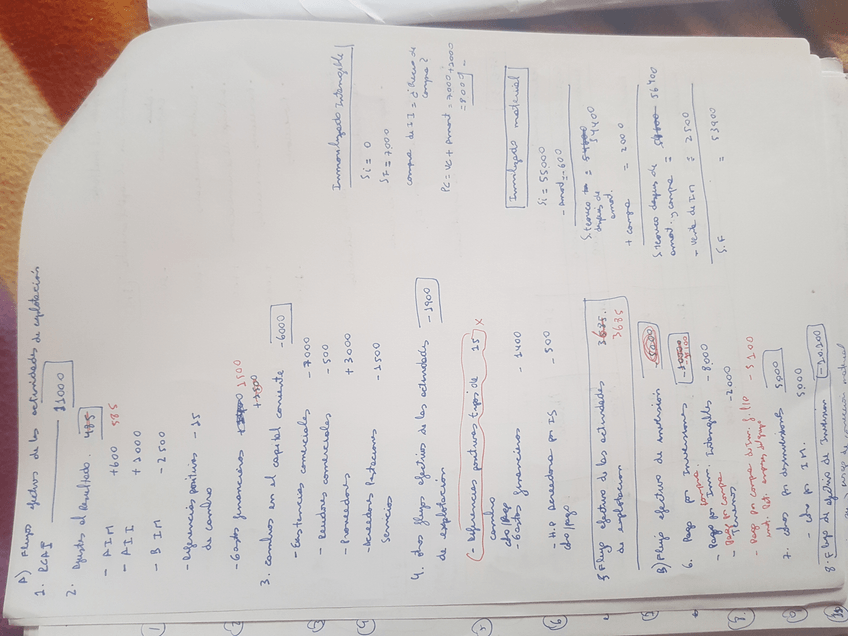 A) Flujos efectivos de las actividades de explotación
1. RCAI 11000
2. Ajustes al resultado. 485
- AIM +600 585
- AII +1000
- B IM -2500
- Diferencias positivas -15
de cambio
- Gastos financieros 1500
+1500
3. Cambios en el capital corriente -6000
- Existencias comerciales -7000
- Deudores comerciales -500
- Proveedores +3000
- Acreedores Prestaciones -1500
Servicios
4. Otros flujos efectivos de las actividades -1900
de explotación
(- Diferencias positivas tipos de 15 x
cambio
cto/pago
- Gastos financieros - 1400
- H.P Acreedora por IS - 500
cto/pago.
5 Flujo efectivo de las actividades 3685
de explotación 3685
B) Flujo efectivo de inversión
6. Pago por Inversiones
compra
- Pago por Inm. Intangibles - 8000
Pago por compra
- Terrenos -2000
- Pago por compra de inm. - 5100
7. cbros por desinversiones 5000
- cbro por IM. 5000
8. Flujo de efectivo de Inversion -10.100
Inmovilizado Intangible
Si = 0
SF = 7000
compra de II = ¿Precio de
compra?
PC = VC + Amort = 7000 + 1000
= 8000
Inmovilizado material
Si = 55000
- Amort = -600
S. teorico
despues de 54400
amort.
+ compra = 2000
S teorico despues de
amort. y compra = 56400
- Venta de IM = 2500
S.F = 53900